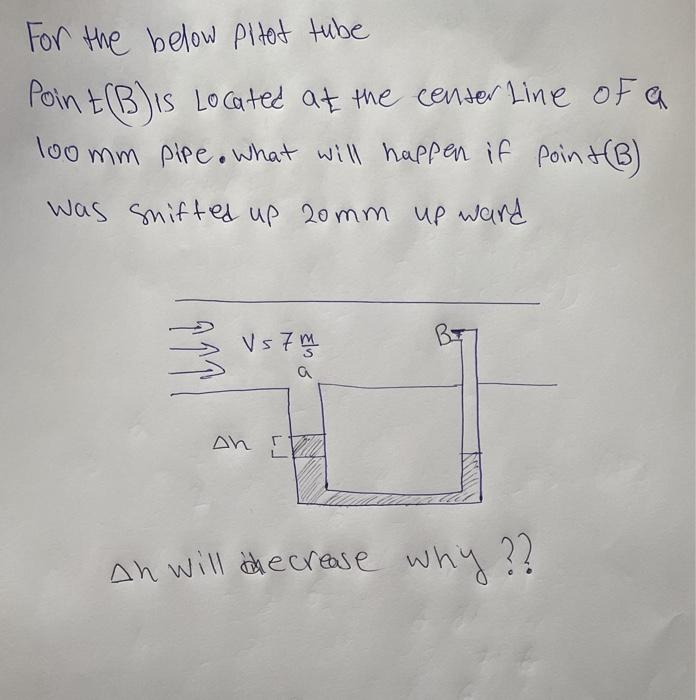 For the below Pitot tube
Point(B) is Located at the center Line of a
100 mm pipe. what will happen if point(B)
was snifted up 20 mm up ward
V = 7 m/s
B
a
Δh
Δh will decrease why ??